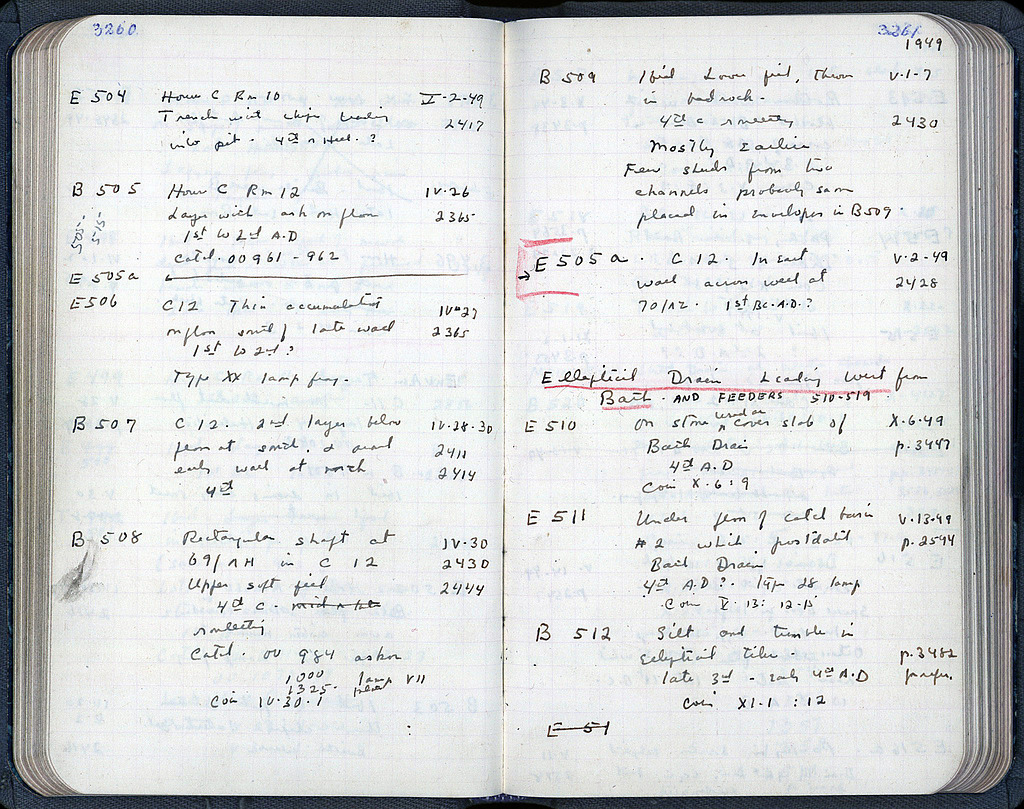 3260
E 504 House C Rm 10 V-2-49
Trench with chips
2417
into pit. 4th ?
B 505 House C Rm 12 IV-26
Layer with ash on floor 2365
1st to 2nd A.D
505-
515-
Catd. 00961 - 962
E 505a
E506 C12 Thin accumulation IV-27
on floor south of late wall 2365
1st to 2nd?
Type XX lamp frag.
B 507 C 12. 2nd layer below IV-28-30
floor at south. & over 2411
early wall at north 2414
4th
B 508 Rectangular shaft at IV-30
69/ΛH in C 12 2430
Upper soft fill 2444
4th C.
Catd. 984
1000 lamp VII
1325-
Coin IV-30-1
3261
1949
B 509 Lower fill, V-1-7
in bedrock-
4th C 2430
Mostly Earlier
Few sherds from two
channels probably same
placed in envelopes in B509.
E 505a. C 12. In east V-2-49
wall across well at 2428
70/ΛZ. 1st BC-A.D.?
Elliptical Drain Leading West from
Bath. AND FEEDERS 510-519.
used as
E 510 On stone cover slab of X-6-49
Bath Drain p.3447
4th A.D
Coin X-6:9
E 511 Under floor of catch basin V-13-49
#2 which postdates p.2544
Bath Drain
4th A.D?. Type 28 lamp
Coin V-13:
B 512 Silt and tumble in
Elliptical tiles. p.3482
late 3rd - early 4th A.D
Coin XI-1:12
E 51